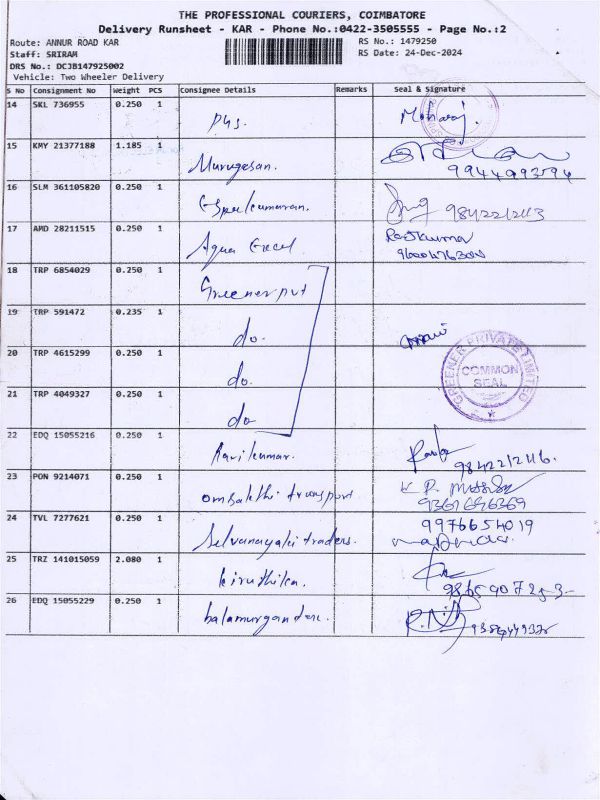 THE PROFESSIONAL COURIERS, COIMBATORE
Delivery Runsheet - KAR - Phone No.:0422-3505555 - Page No.:2
Route: ANNUR ROAD KAR
RS No.: 1479250
Staff: SRIRAM
RS Date: 24-Dec-2024
DRS No.: DCJB147925002
Vehicle: Two Wheeler Delivery
S No Consignment No Weight PCS Consignee Details Remarks Seal & Signature
14 SKL 736955 0.250 1
15 KMY 21377188 1.185 1 Murugesan.
16 SLM 361105820 0.250 1
17 AMD 28211515 0.250 1 Aqua Excel Rajkumar
18 TRP 6854029 0.250 1 Greener pvt
19 TRP 591472 0.235 1 do.
20 TRP 4615299 0.250 1 do.
21 TRP 4049327 0.250 1 do
GREEKER PRIVATE LIMITED
COMMON
SEAL
22 EDQ 15055216 0.250 1 Ravikumar.
23 PON 9214071 0.250 1 omsakthi transport
24 TVL 7277621 0.250 1 Selvanayaki traders. 9976654019
25 TRZ 141015059 2.080 1 kiruthika.
26 EDQ 15055229 0.250 1